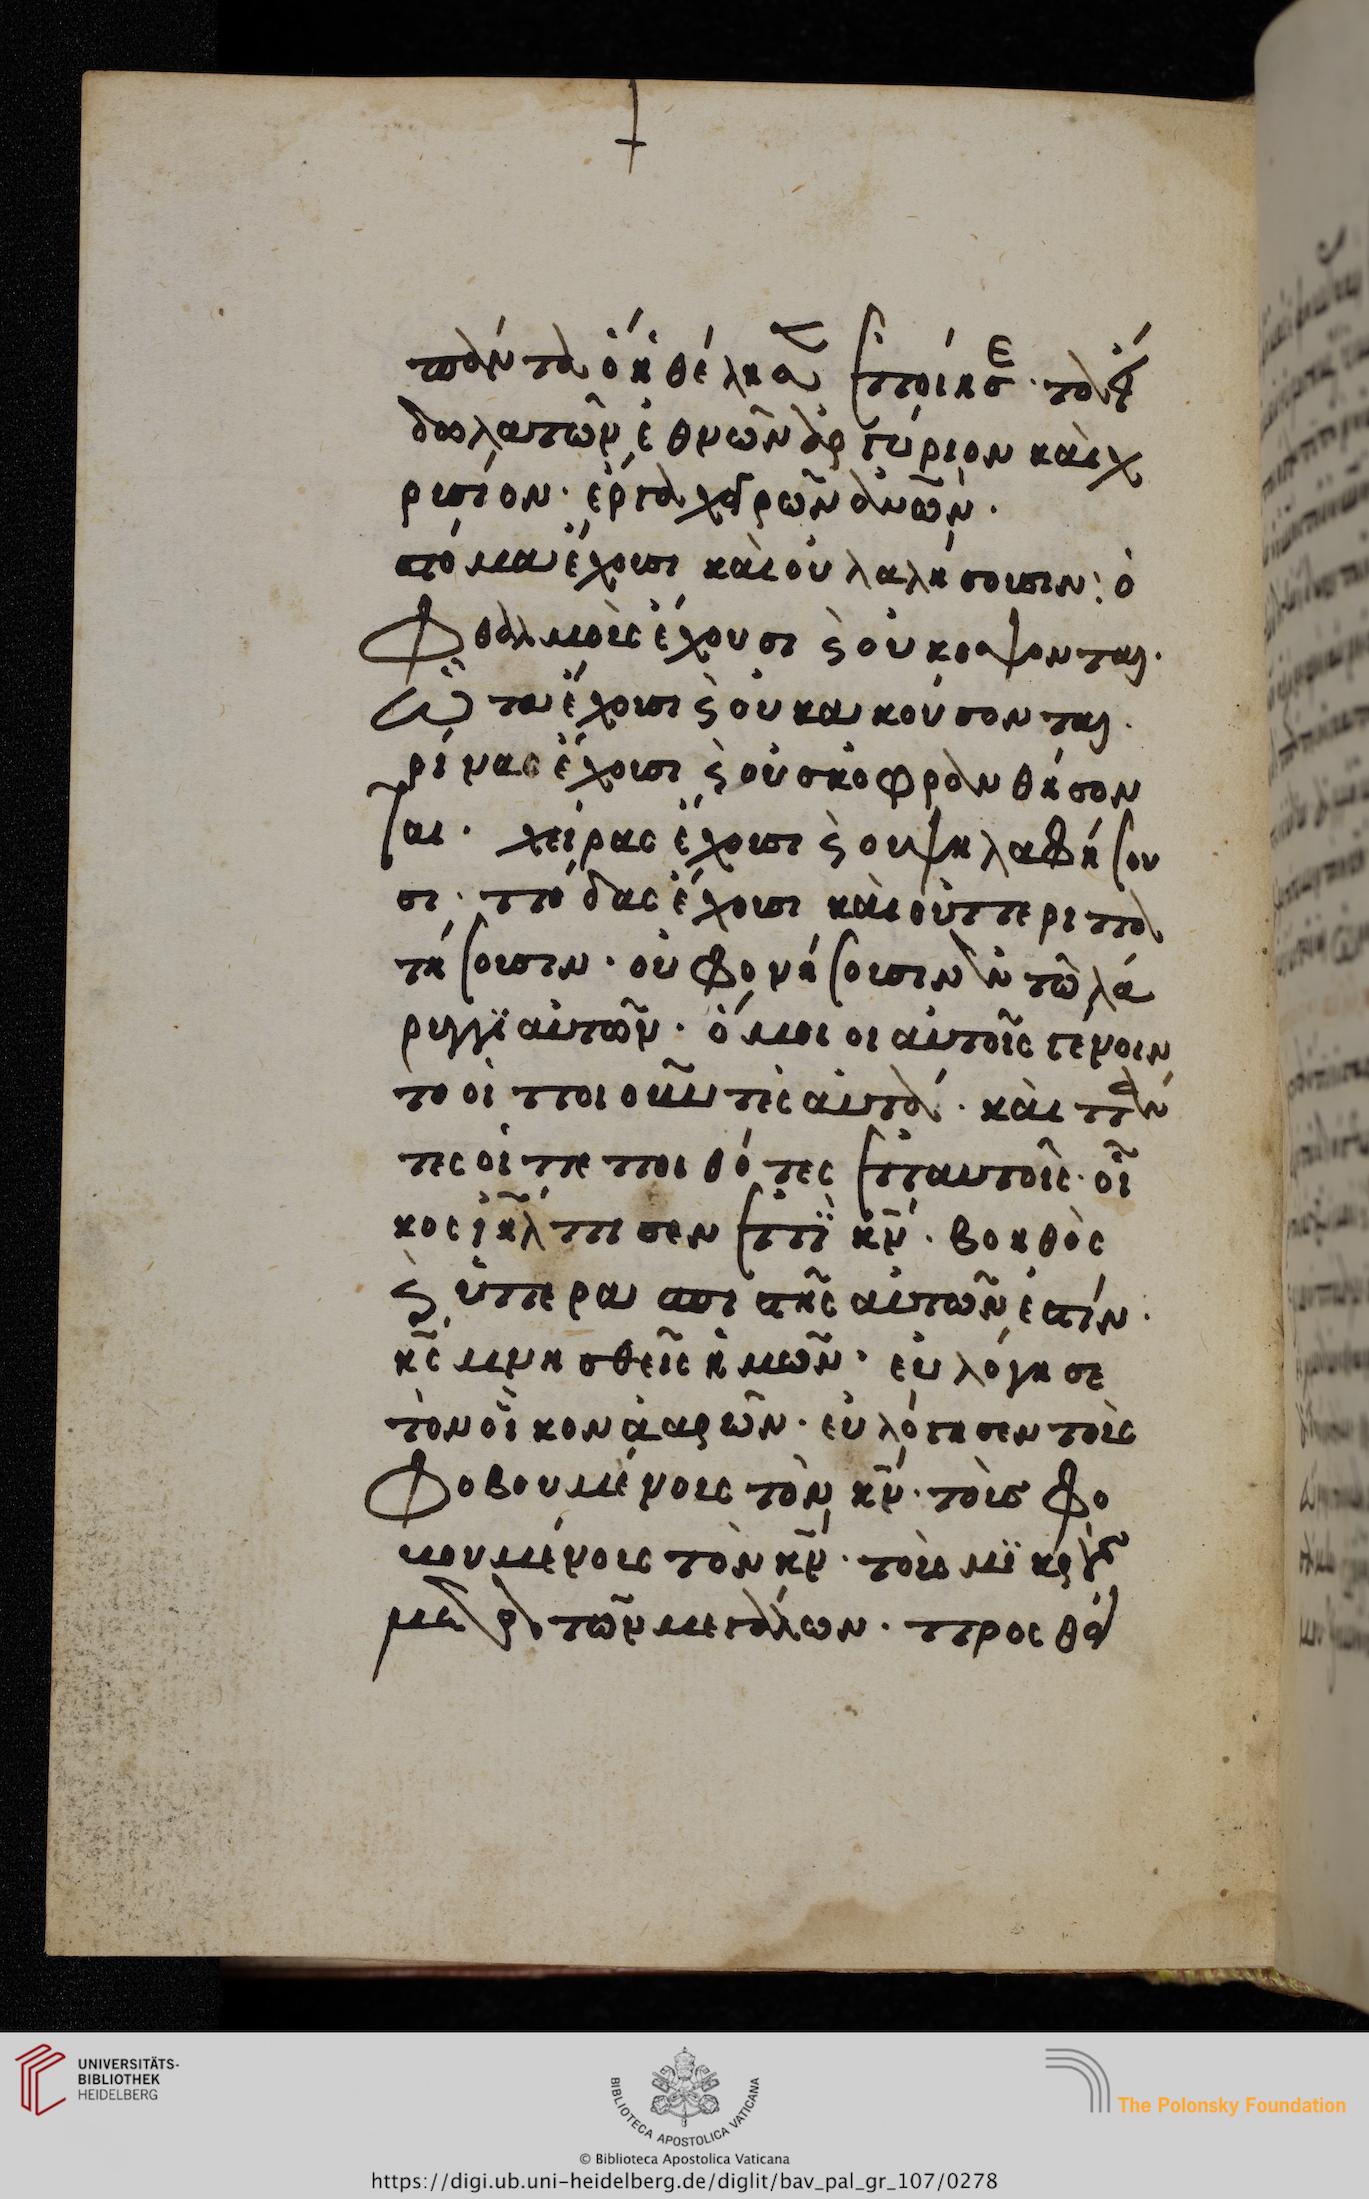 πάντα ὁ ἠθέλησεν ἐποίησε. τὰ εἴ
δωλα τῶν ἐθνῶν ἀργύριον καὶ χ
ρισίον. ἔργα χειρῶν ἀνῶν.
στόμα ἔχουσι καὶ οὐ λαλήσουσιν. ὀ
φθαλμοὶς ἔχουσι ϗ οὐκ οψονται.
ὦτα ἔχουσι ϗ οὐκ ακούσονται.
ρίνας ἔχουσι ϗ οὐσκοφρανθήσον
ται. χείρας ἔχουσι ϗ ου ψηλαφήσου
σι. πόδας ἔχουσι καὶ οὐ περιπα
τήσουσιν. οὐ φονήσουσιν ἐν τῶ λά
ριγγϊ αυτῶν. ὅμοιοι αὐτοῖς γένοιν
το οἱ ποιοῦντὲς αὐτά. καὶ πάν
τες οἱ πεποιθότες ἐπαυτοῖς. οἶ
κος ιηλ ἤλπισεν ἐπῒ κν. βοηθὸς
ϗ ὑπερασπιστῆς αὐτῶν ἐστίν.
κς μνησθεῖς ἡμῶν. εὐλόγησε
τὸν οἶκον ἀαρῶν. εὐλόγησεν τοὶς
φοβουμένοις τὸν κν. τοὶς φο
μουμένοις τὸν κν. τοὶς μϊκρῶν
μετὰ τῶν μεγάλων. προσθεί
UNIVERSITÄTS-
BIBLIOTHEK
HEIDELBERG
BIBLIOTECA APOSTOLICA VATICANA
The Polonsky Foundation
© Biblioteca Apostolica Vaticana
https://digi.ub.uni-heidelberg.de/diglit/bav_pal_gr_107/0278